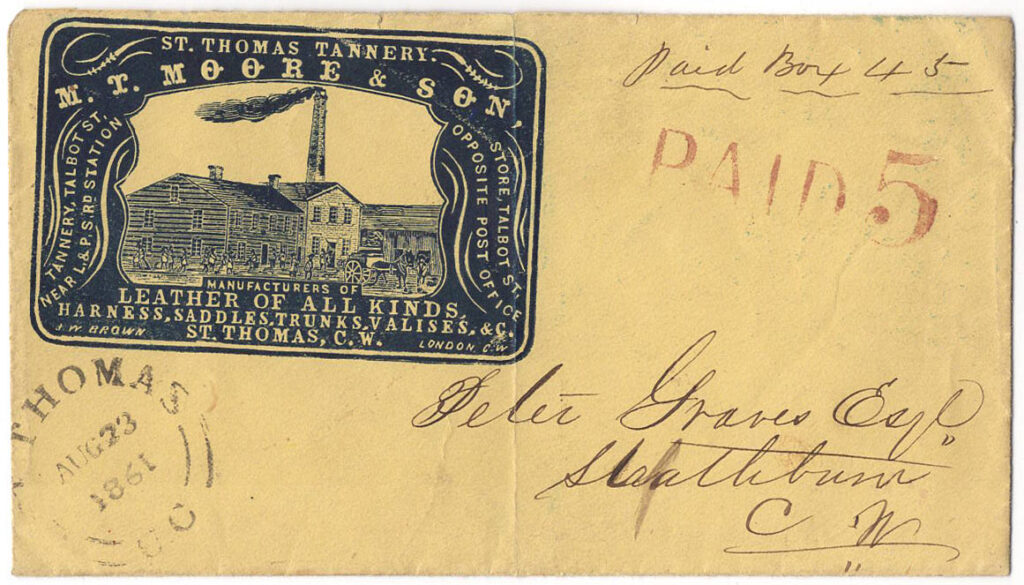 ST. THOMAS TANNERY.
M. T. MOORE & SON,
TANNERY, TALBOT ST,
NEAR L.&P.S.RD STATION
STORE, TALBOT ST.
OPPOSITE POST OFFICE
MANUFACTURERS OF
LEATHER OF ALL KINDS
HARNESS, SADDLES, TRUNKS, VALISES, &C.
ST. THOMAS, C.W.
J.W. BROWN
LONDON, C.W
Paid Box 45
PAID 5
THOMAS
AUG 23
1861
U C
Peter Graves Esqr
Strathburn
C W